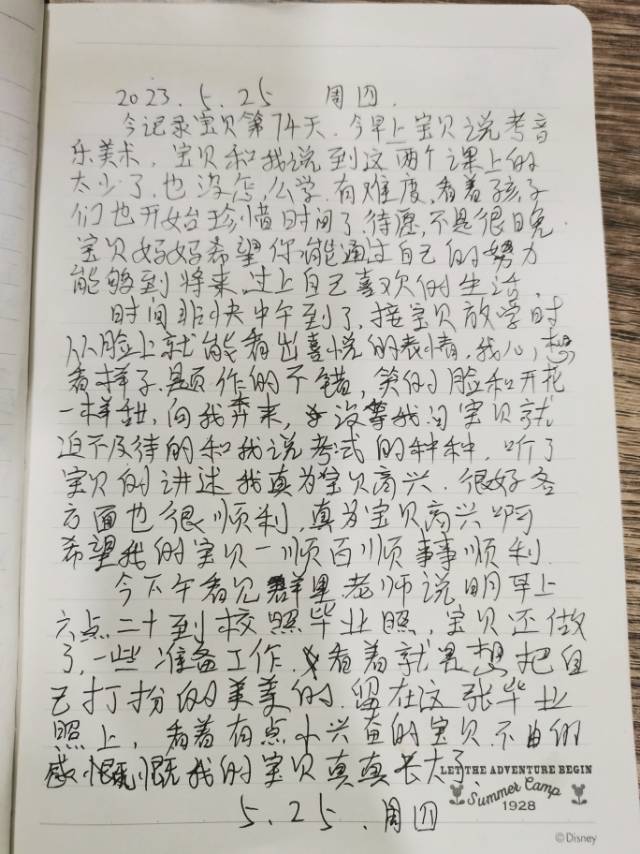 2023.5.25 周四.
今记录宝贝第74天.今早上宝贝说考音
乐美术.宝贝和我说到这两个课上的
太少了.也没怎么学.有难度.看着孩子
们也开始珍惜时间了.待愿,不是很晚.
宝贝妈妈希望你能通过自己的努力
能够到将来.过上自己喜欢的生活.
时间非快中午到了.接宝贝放学时
从脸上就能看出喜悦的表情,我心想
看样子.题作的不错,笑的脸和开花
一样甜,向我奔来,没等我问宝贝就
迫不及待的和我说考试的种种.听了
宝贝的讲述我真为宝贝高兴.很好各
方面也很顺利,真为宝贝高兴啊
希望我的宝贝一顺百顺事事顺利.
今下午看见群里老师说明早上
六点二十到校照毕业照,宝贝还做
了,一些准备工作.看着就是想把自
己打扮的美美的.留在这张毕业
照上,看着有点小兴奋的宝贝.不由的
感慨慨我的宝贝真真长大了
LET THE ADVENTURE BEGIN
Summer Camp
1928
5.25.周四
©Disney